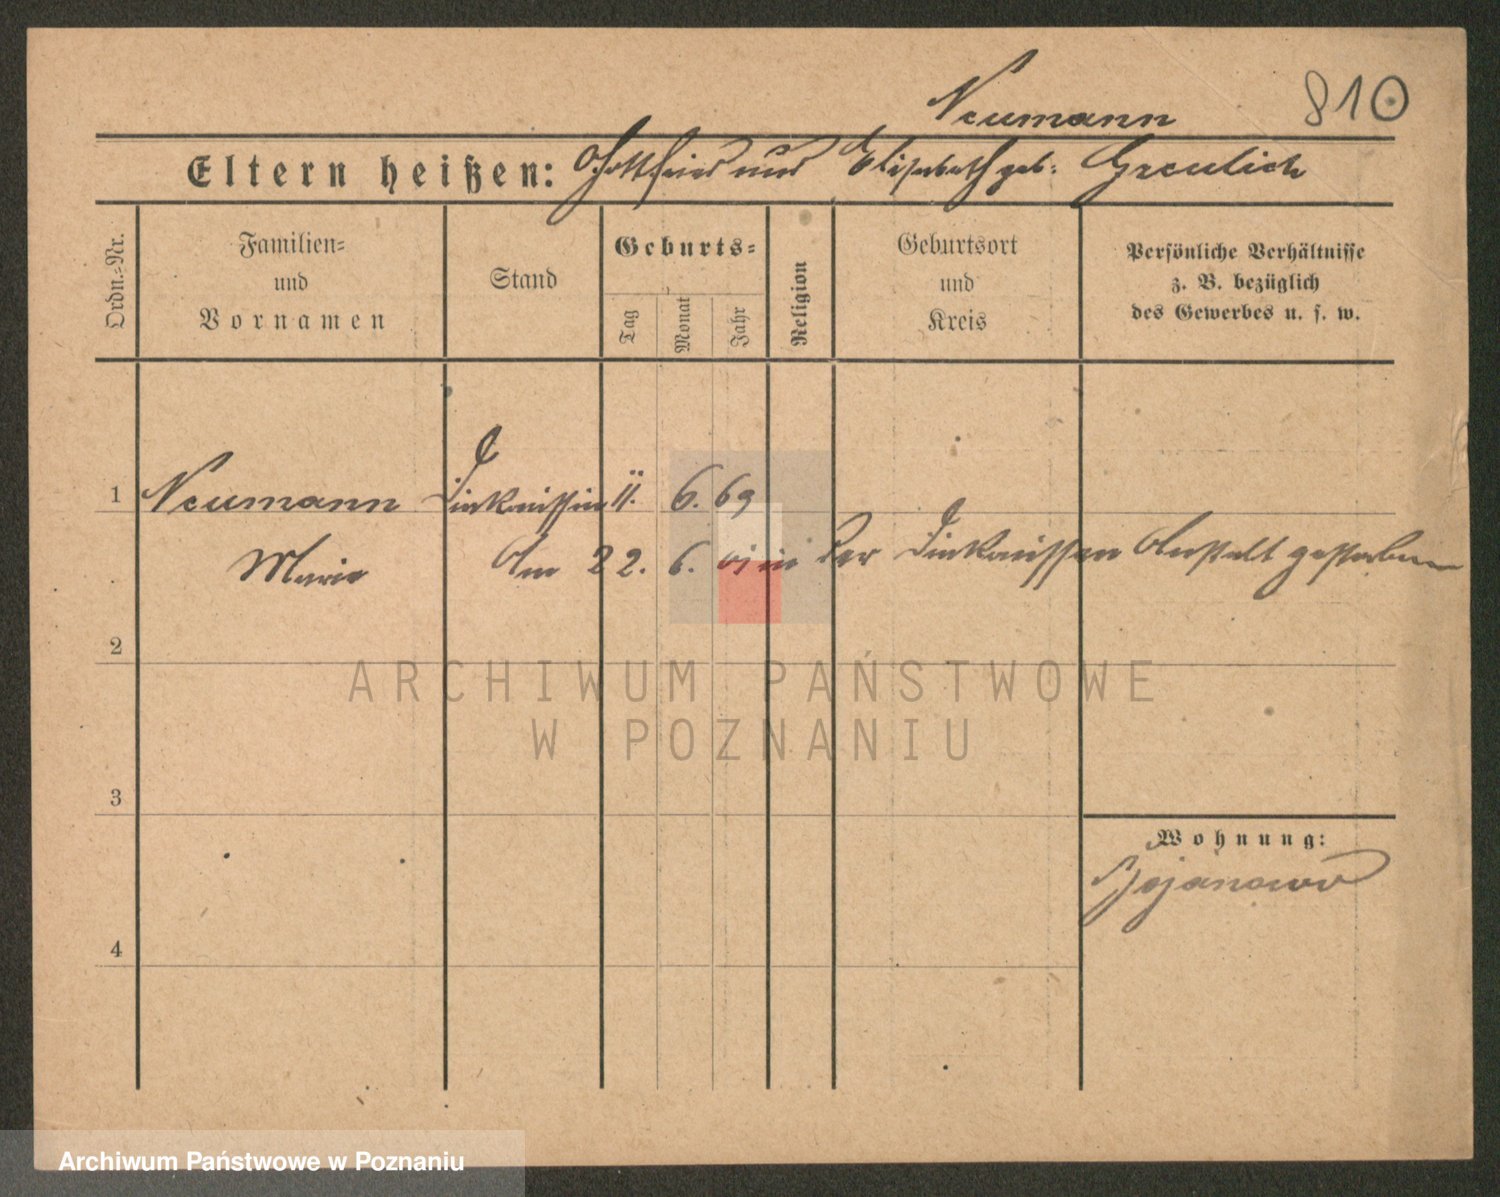 810
Neumann
Eltern heißen: Gottfried und Elisabeth geb. Greulich
Ordn.-Nr.
Familien-
und
Vornamen
Stand
Geburts-
Tag
Monat
Jahr
Religion
Geburtsort
und
Kreis
Persönliche Verhältnisse
z. B. bezüglich
des Gewerbes u. s. w.
1 Neumann Diakonissin 11. 6. 69
Marie Am 22. 6. in der Diakonissen Anstalt gestorben
2
ARCHIWUM PAŃSTWOWE
W POZNANIU
3
Wohnung:
Bojanowo
4
Archiwum Państwowe w Poznaniu